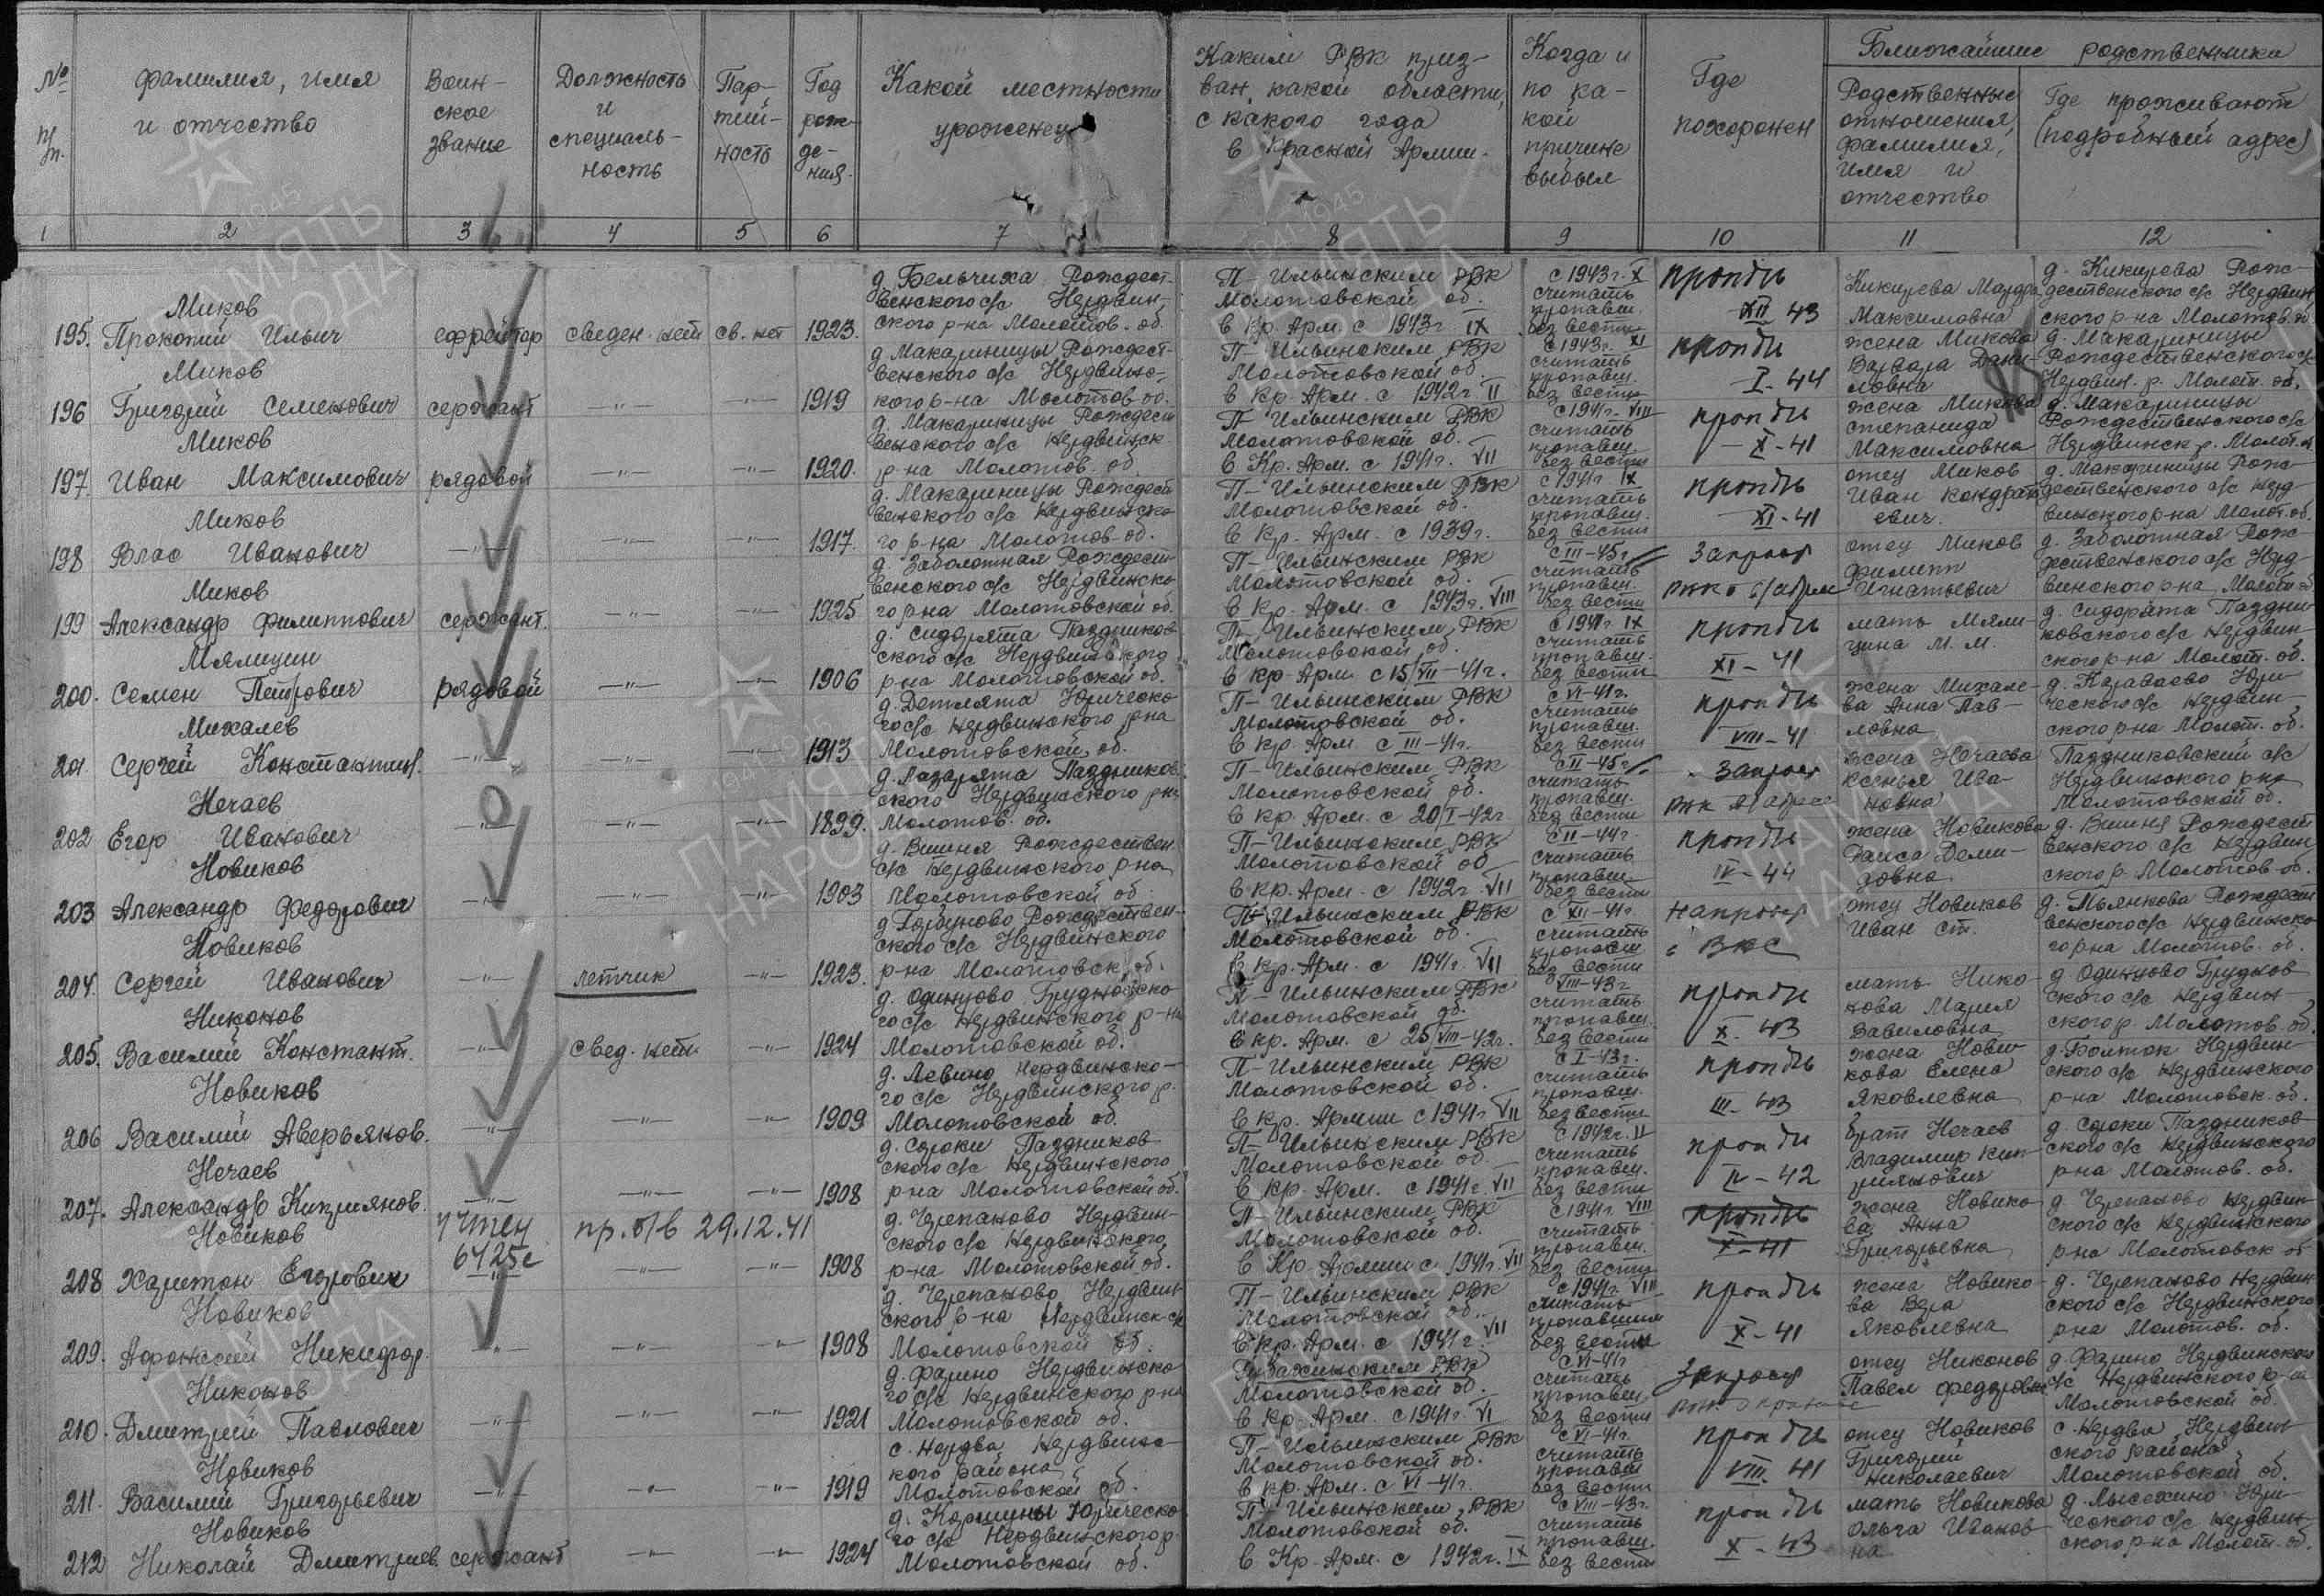 № п/п.
фамилия, имя
и отчество
Воин-
ское
звание
Должность
и
специаль-
ность
Пар-
тий-
ность
Год
рож-
де-
ния.
Какой местности
уроженец
Каким РВК приз-
ван, какой области,
с какого года
в Красной Армии.
Когда и
по ка-
кой
причине
выбыл
Где
похоронен
Ближайшие родственники
Родственные
отношения,
фамилия,
имя и
отчество
Где проживают
(подробный адрес)
1 2 3 4 5 6 7 8 9 10 11 12
195. Миков
Прокопий Ильич
ефрейтор
сведен. нет
св. нет
1923.
д. Бельчиха Рождест-
венского с/с Нердвин-
ского р-на Молотов. об.
П-Ильинским РВК
Молотовской об.
в Кр. Арм. с 1943г IX
с 1943г. X
считать
пропавш.
без вести
XII 43
Максимовна
дественского с/с Нердвин
ского р-на Молотов. об
196 Миков
Григорий Семенович
сержант
—"—
—"—
1919
д. Макариницы Рождест-
венского с/с Нердвинс-
кого р-на Молотов об.
П-Ильинским РВК
Молотовской об.
в Кр. Арм. с 1942г. II
с 1943г. XI
считать
пропавш.
без вести
I-44
жена Микова
Варвара Дани-
ловна
д. Макариницы
Рождественского с/с
Нердвин. р. Молот. об.
197. Миков
Иван Максимович
рядовой
—"—
—"—
1920.
д. Макариницы Рождест
венского с/с Нердвинск
р-на Молотов. об.
П-Ильинским РВК
Молотовской об.
в Кр. Арм. с 1941г. VII
с 1941г. VIII
считать
пропавш
без вести
X-41
жена Микова
Степанида
Максимовна
д. Макариницы
Рождественского с/с
Нердвинск р. Молот. об
198 Миков
Влас Иванович
—"—
—"—
—"—
1917.
д. Макариницы Рождест
венского с/с Нердвинско
го р-на Молотов об.
П-Ильинским РВК
Молотовской об.
в Кр. Арм. с 1939г.
с 1941г IX
считать
пропавш.
без вести
XI-41
отец Миков
Иван Кондрать
евич.
д. Макариницы Рож-
дественского с/с Нерд-
винского р-на Молот. об.
199 Миков
Александр Филиппович
сержант.
—"—
—"—
1925
д. Заболотная Рождест
венского с/с Нердвинско
го р-на Молотовской об.
П-Ильинским РВК
Молотовской об.
в Кр. Арм. с 1943г. VIII
с III-45г
считать
пропавш.
без вести
Запрос
отец Миков
Филипп
Игнатьевич
д. Заболотная Рож
дественского с/с Нерд-
винского р-на Молот об
200. Мялицин
Семен Петрович
рядовой
—"—
—"—
1906
д. Сидорята Паздников-
ского с/с Нердвинского
р-на Молотовской об.
П-Ильинским РВК
Молотовской об.
в Кр Арм. с 15/VII-41г.
с 1941г IX
считать
пропавш.
без вести
XI-41
мать Мяли-
цина М. М.
д. Сидорята Паздни
ковского с/с Нердвин
ского р-на Молот. об.
201. Михалев
Сергей Константин.
—"—
—"—
—"—
1913
д. Детлята Юрическо-
го с/с Нердвинского р-на
Молотовской об.
П-Ильинским РВК
Молотовской об.
в Кр Арм. с III-41г.
с VI-41г.
считать
пропавш.
без вести
VIII-41
жена Михале-
ва Анна Пав-
ловна
д. Караваево Юри-
ческого с/с Нердвин
ского р-на Молот. об.
202 Нечаев
Егор Иванович
—"—
—"—
—"—
1899.
д. Лазарята Паздников
ского Нердвинского р-на
Молотов. об.
П-Ильинским РВК
Молотовской об.
в Кр. Арм. с 20/I-42г
с II-45г
считать
пропавш.
без вести
Запрос
жена Нечаева
Ксенья Ива-
новна
Паздниковский с/с
Нердвинского р-на
Молотовской об.
203 Новиков
Александр Федорович
—"—
—"—
—"—
1903
д. Вишня Рождествен.
с/с Нердвинского р-на
Молотовской об.
П-Ильинским РВК
Молотовской об
в Кр. Арм. с 1942г. VII
с II-44г.
считать
пропавш.
без вести
IV-44
жена Новикова
Раиса Деми-
довна
д. Вишня Рождест
венского с/с Нердвин
ского р. Молотов об.
204. Новиков
Сергей Иванович
—"—
летчик
—"—
1923.
д. Горбуново Рождествен-
ского с/с Нердвинского
р-на Молотовск. об.
П-Ильинским РВК
Молотовской об.
в Кр. Арм. с 1941г. VII
с XII-41г
считать
пропавш
без вести
в ВКС
отец Новиков
Иван Ст.
венского с/с Нердвинско
го р-на Молотов. об.
205. Никонов
Василий Констант.
—"—
свед. нет
—"—
1924
д. Одинцово Грудновско-
го с/с Нердвинского р-на
Молотовской об.
П-Ильинским РВК
Молотовской об.
в Кр. Арм. с 25/VIII-42г.
VIII-43г
считать
пропавш.
без вести
X. 43
мать Нико-
нова Мария
Вавиловна
д Одинцово Грудков
ского с/с Нердвин-
ского р. Молотов. об
206 Новиков
Василий Аверьянов.
—"—
—"—
—"—
1909
д. Левино Нердвинско-
го с/с Нердвинского р.
Молотовской об.
П-Ильинским РВК
Молотовской об.
в Кр. Армии с 1941г VII
с I-43г.
считать
пропавш.
без вести
III-43
жена Нови
кова Елена
Яковлевна
ского с/с Нердвинского
р-на Молотовск. об.
207. Нечаев
Александр Киприянов.
—"—
—"—
—"—
1908
д. Сороки Паздников-
ского с/с Нердвинского
р-на Молотовской об.
П-Ильинским РВК
Молотовской об.
в Кр. Арм. с 1941г. VII
с 1942г. II
считать
пропавш.
без вести
IV-42
брат Нечаев
Владимир Кип-
риянович
д. Сороки Паздников-
ского с/с Нердвинского
р-на Молотов. об.
208 Новиков
Харитон Егорович
учтен
6425с
пр. б/в 29.12.41
—"—
—"—
1908
д. Черепаново Нердвин-
ского с/с Нердвинского
р-на Молотовской об.
П-Ильинским РВК
Молотовской об.
в Кр. Армии с 1941г. VII
с 1941г. VIII
считать
пропавш.
без вести
X-41
жена Новико-
ва Анна
Григорьевна
д. Черепаново Нердвин
ского с/с Нердвинского
р-на Молотовск об
209. Новиков
Афонасий Никифор.
—"—
—"—
—"—
1908
д. Черепаново Нердвин
ского р-на Нердвинск с/с
Молотовской об.
П-Ильинским РВК
Молотовской об.
в Кр. Арм. с 1941г. VII
с 1941г. VIII
считать
пропавшим
без вести
X-41
жена Новико-
ва Вера
Яковлевна
д. Черепаново Нердвин
ского с/с Нердвинского
р-на Молотов. об.
210. Никонов
Дмитрий Павлович
—"—
—"—
—"—
1921
д. Фарино Нердвинско
го с/с Нердвинского р-на
Молотовской об.
Губахинским РВК
Молотовской об.
в Кр. Арм. с 1941г. VI
с VI-41г
считать
пропавш.
без вести
Запрос
отец Никонов
Павел Федорович
д. Фарино Нердвинского
с/с Нердвинского р-на
Молотовской об.
211. Новиков
Василий Григорьевич
—"—
—"—
—"—
1919
с. Нердва Нердвинс-
кого района
Молотовской об.
П-Ильинским РВК
Молотовской об.
в Кр. Арм. с VI-41г.
с VI-41г.
считать
пропавш
без вести
VIII. 41
отец Новиков
Григорий
Николаевич
с. Нердва Нердвин-
ского района
Молотовской об.
212 Новиков
Николай Дмитриев.
сержант
—"—
—"—
1924
д. Коршуны Юрическо
го с/с Нердвинского р.
Молотовской об.
П-Ильинским РВК
Молотовской об.
в Кр. Арм. с 1942г. IX
с VIII-43г.
считать
пропавш.
без вести
X-43
мать Новикова
Ольга Иванов-
на
д. Лысехино Юри-
ческого с/с Нердвин-
ского р-на Молот. об.
1941-1945
ПАМЯТЬ
НАРОДА